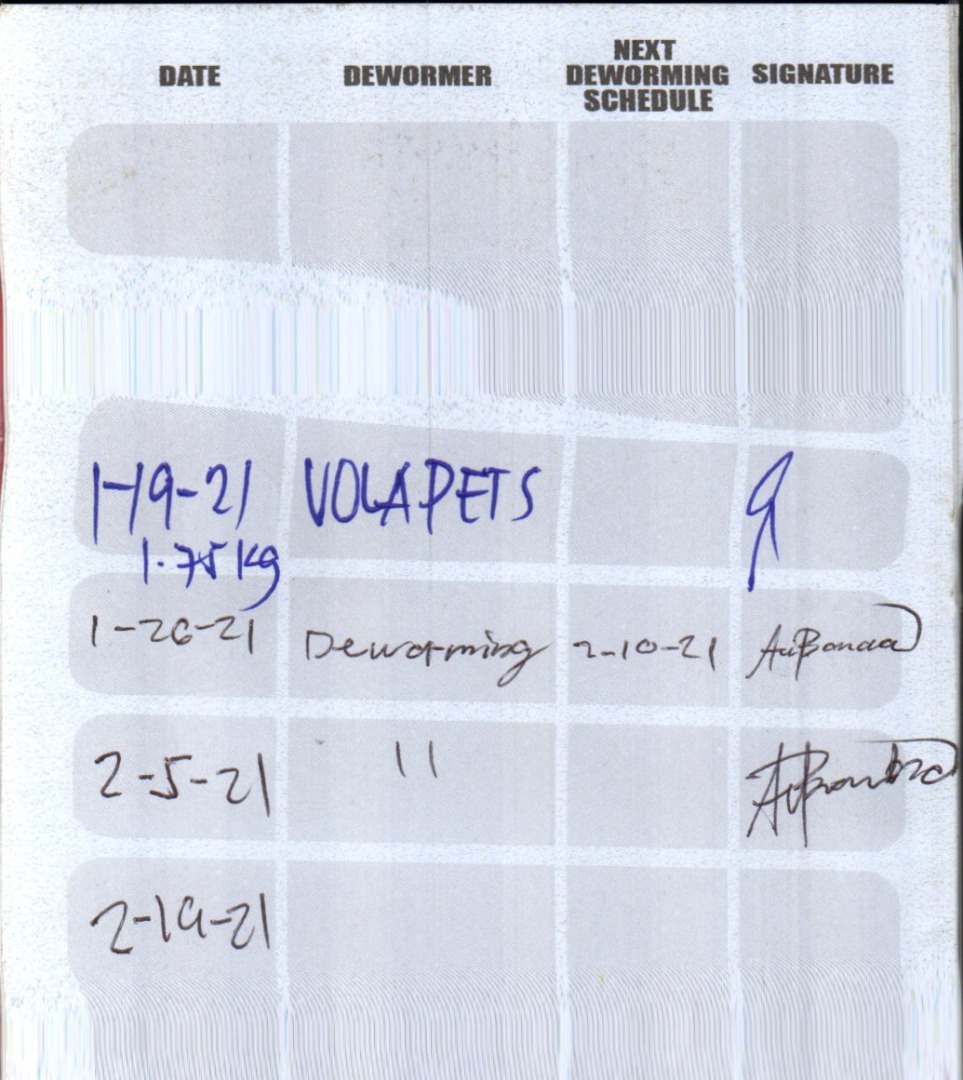 DATE DEWORMER NEXT DEWORMING SCHEDULE SIGNATURE
1-19-21 VOLAPETS
1.75 kg
1-26-21 Deworming 2-10-21
2-5-21 11
2-19-21